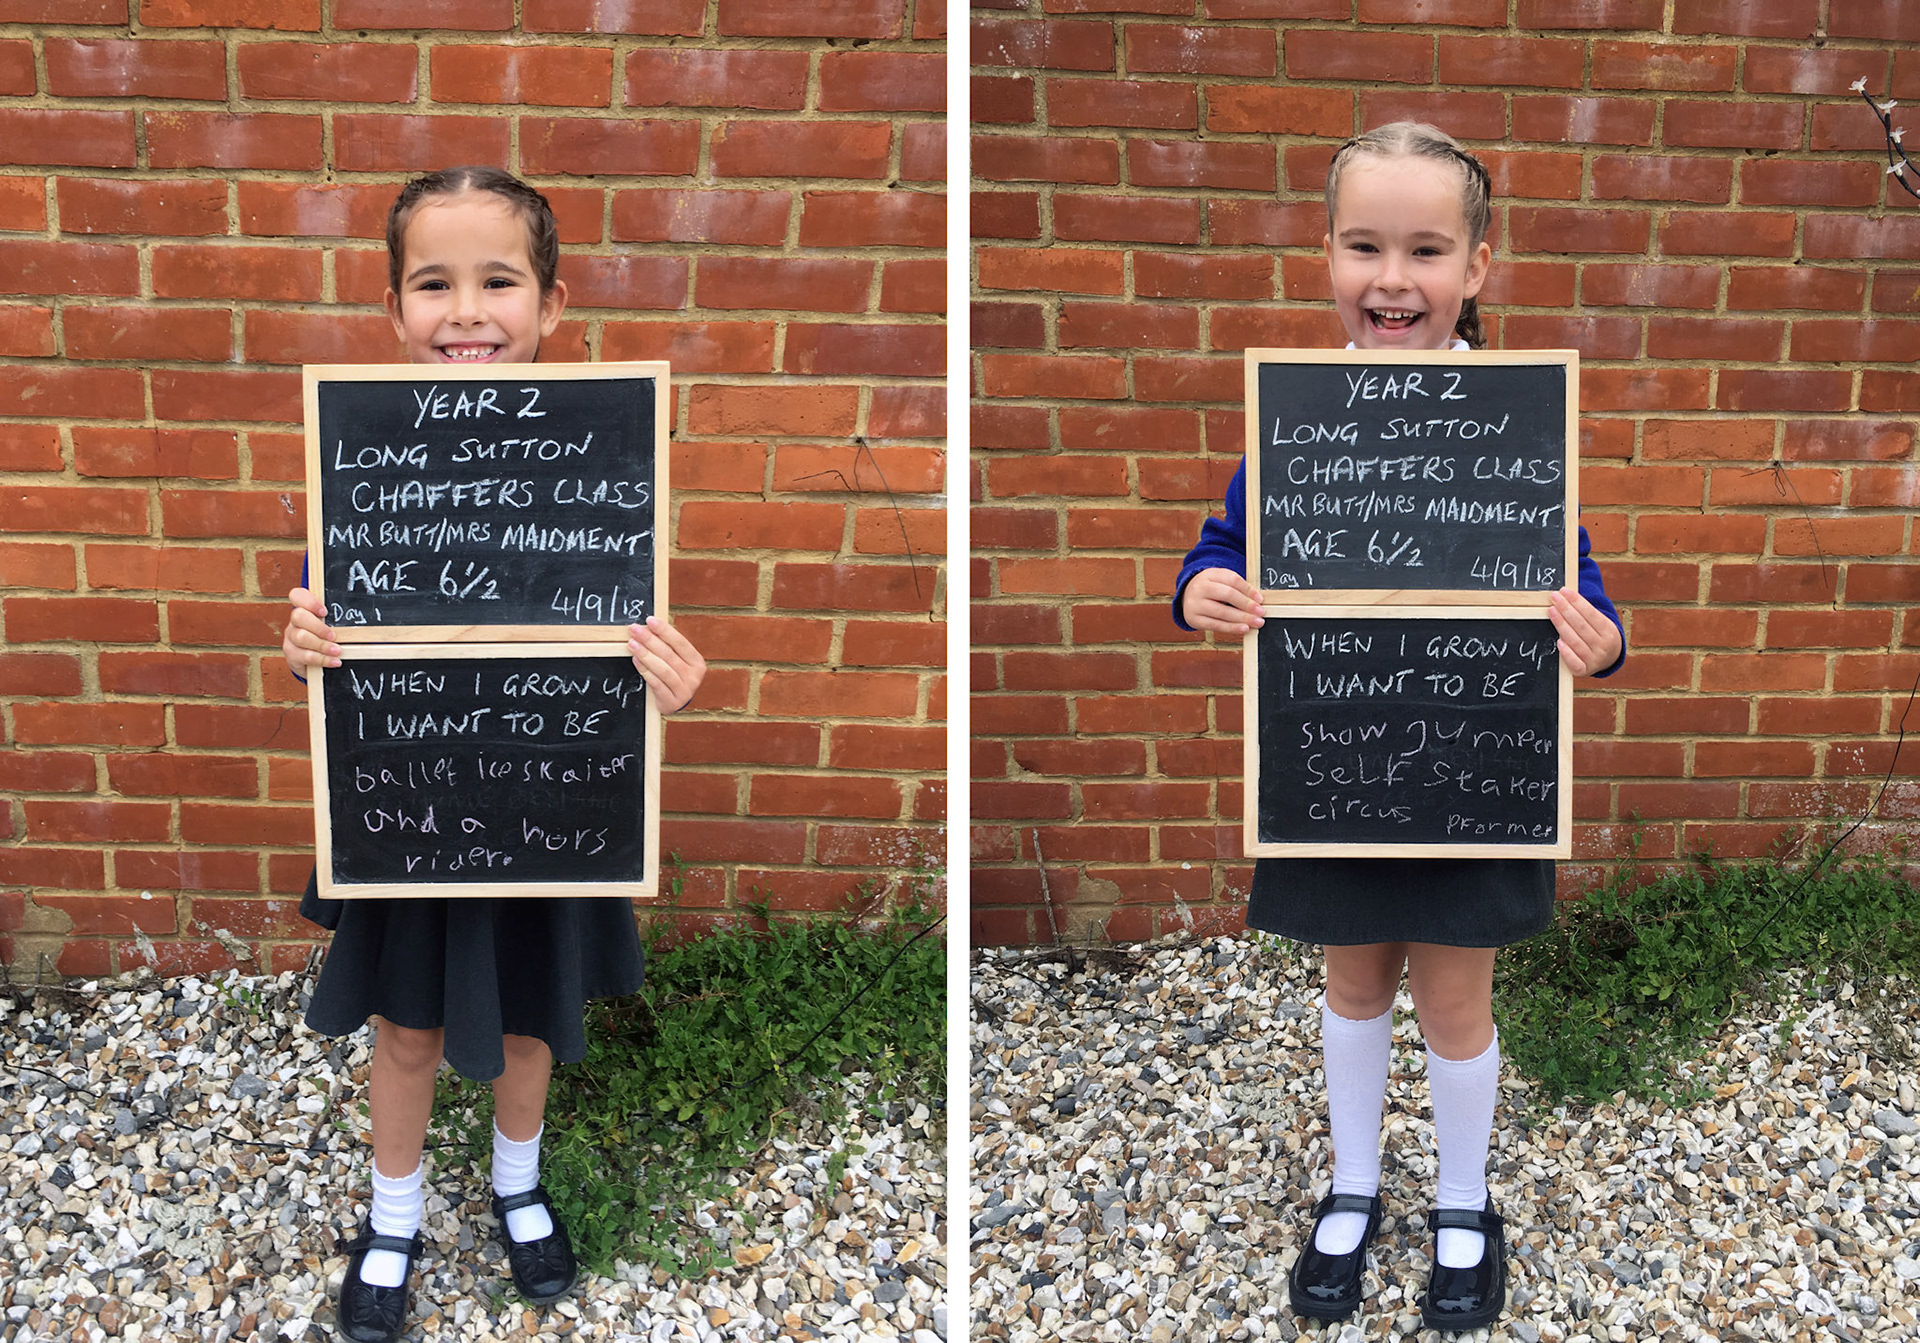 YEAR 2
LONG SUTTON
CHAFFERS CLASS
MR BUTT/MRS MAIDMENT
AGE 6½
Day 1 4/9/18
WHEN I GROW UP
I WANT TO BE
ballet iceskaiter
and a hors
rider.
YEAR 2
LONG SUTTON
CHAFFERS CLASS
MR BUTT/MRS MAIDMENT
AGE 6½
Day 1 4/9/18
WHEN I GROW UP
I WANT TO BE
Show Jumper
Self Staker
circus PFormer